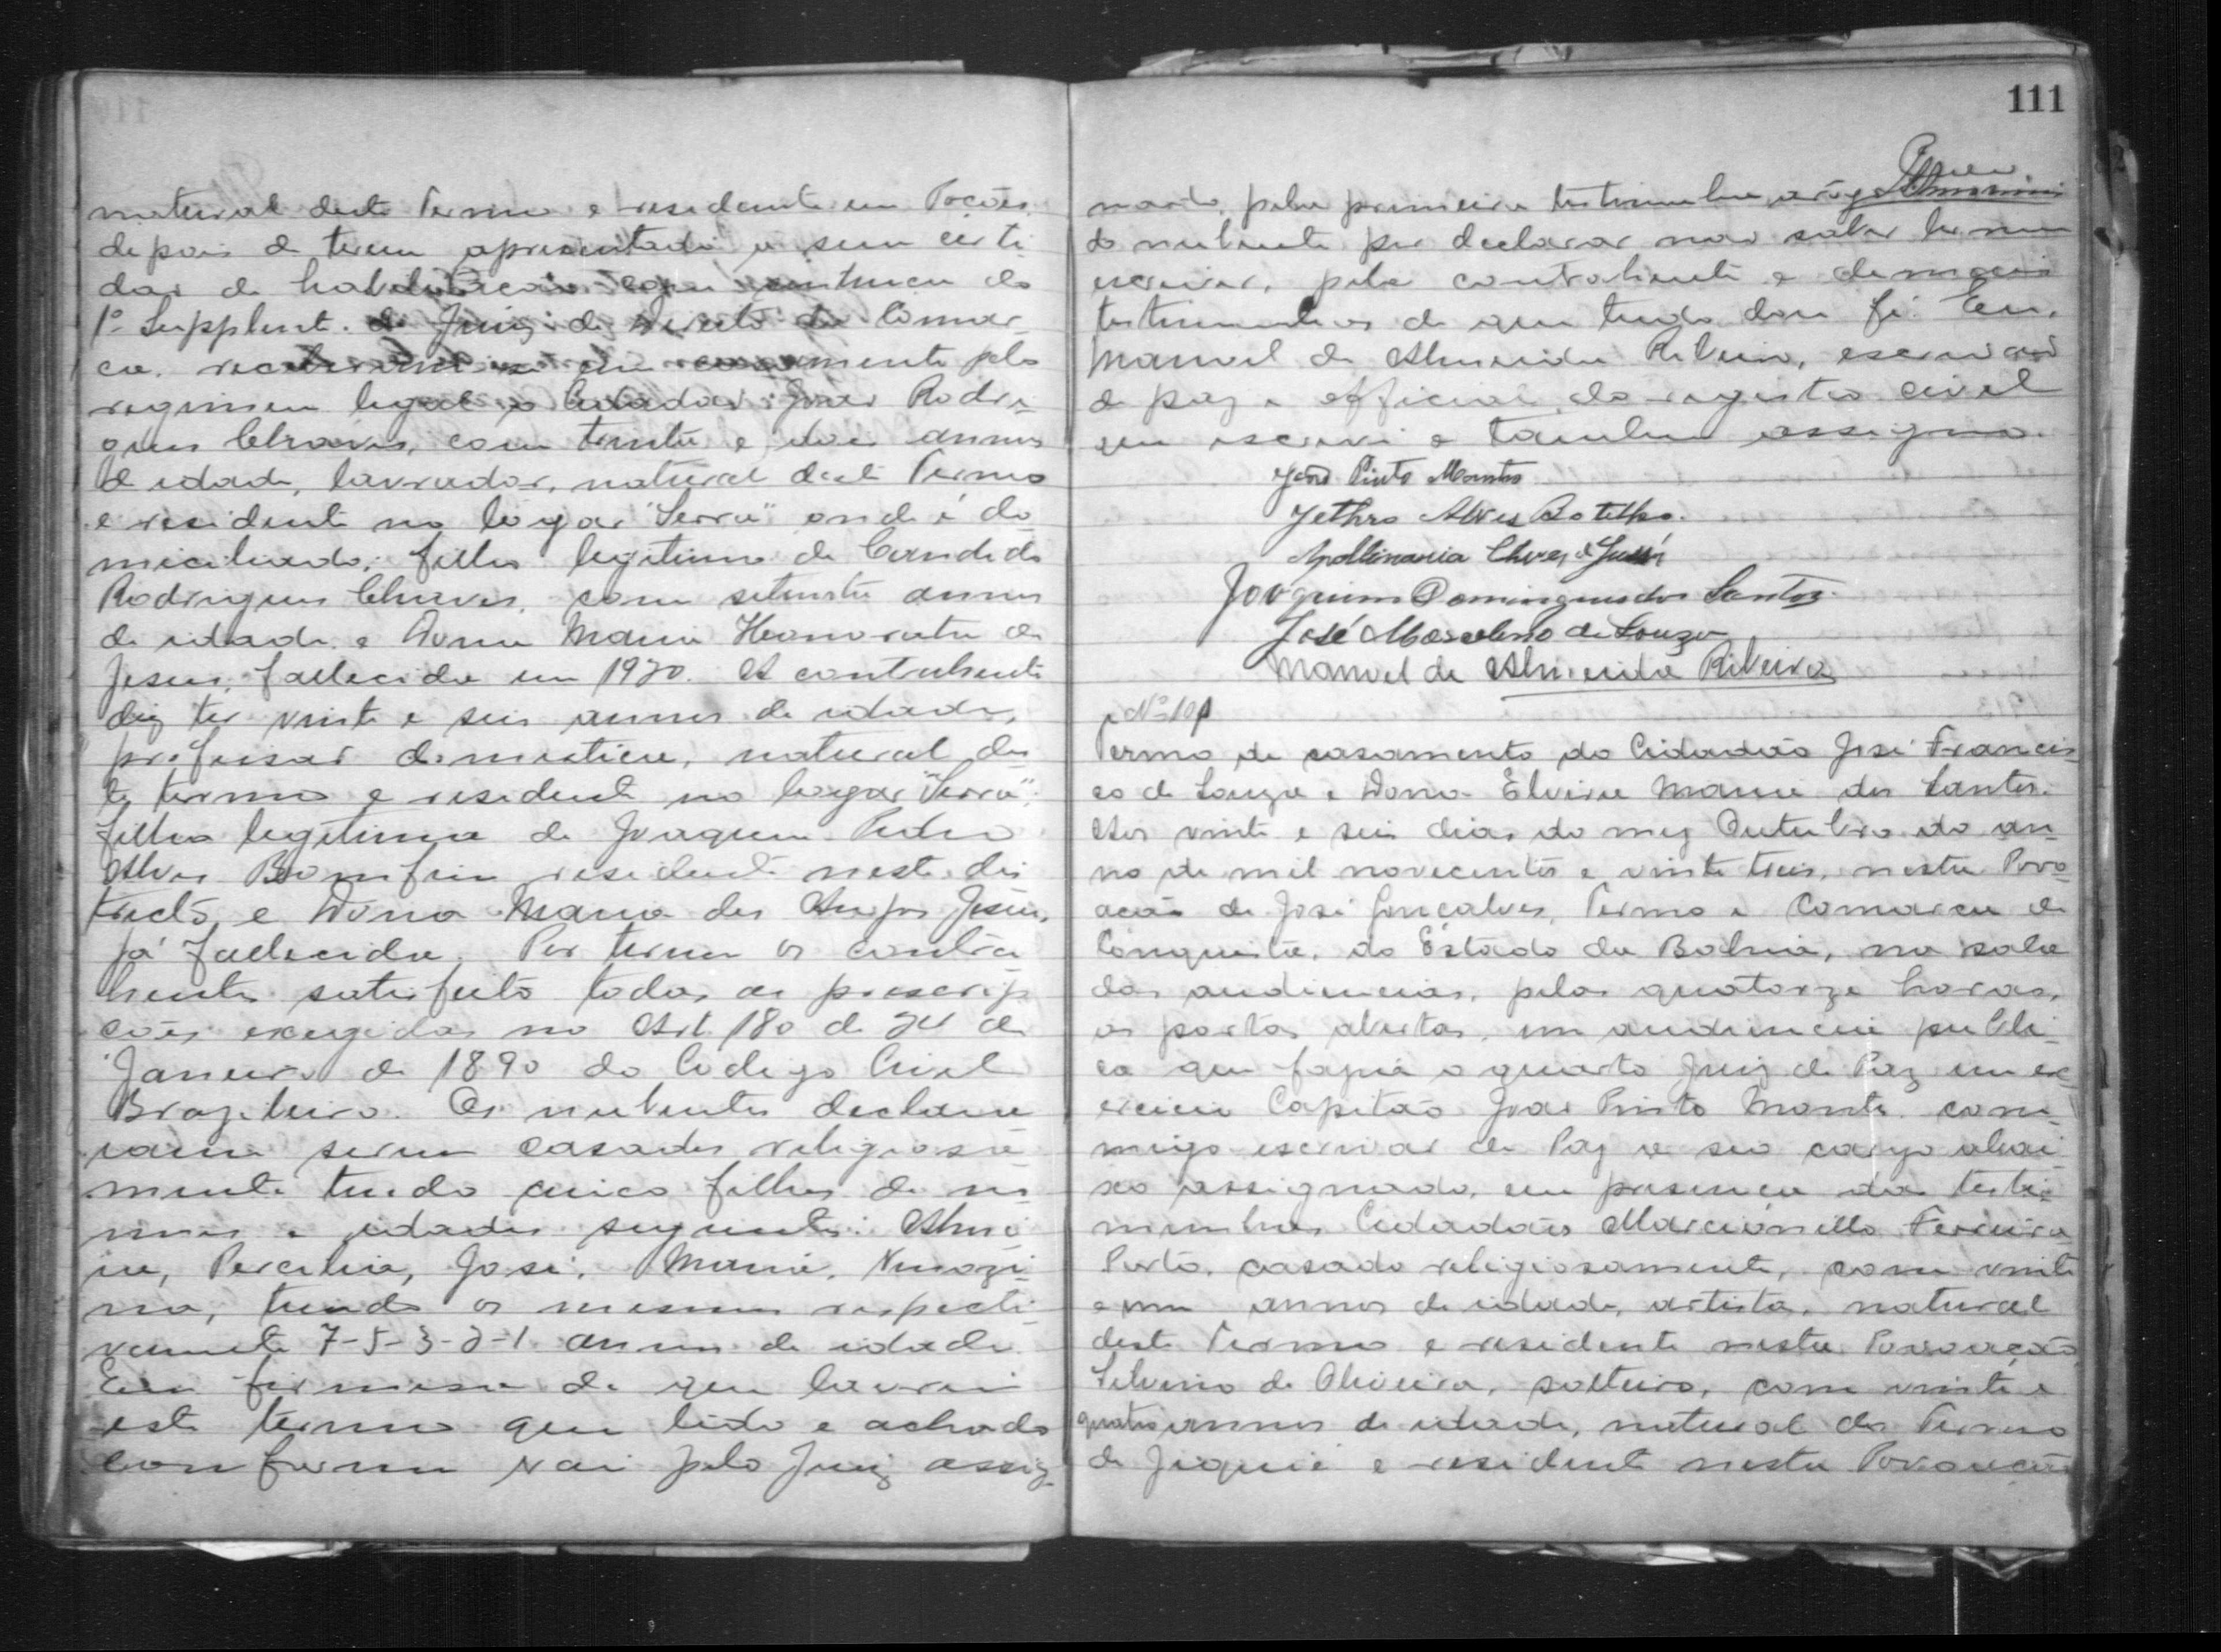 natural deste Termo e residente em Poções,
depois de terem apresentado a sua certi
dão de habilitação com sentença do
1º Supplente do Juiz de Direito da Comar-
ca, receberam-se em casamento pelo
regimen legal o Cidadão João Rodri-
gues Chaves, com trinta e dois annos
de idade, lavrador, natural deste Termo
e residente no logar "Serra" onde é do
miciliado; filho legitimo de Candido
Rodrigues Chaves, com setenta annos
de idade e Dona Maria Honorata de
Jesus, fallecida em 1920. A contrahente
diz ter vinte e seis annos de idade,
profissão domestica, natural des
te termo e residente no logar "Serra";
filha legitima de Joaquim Pedro
Alves Bomfim residente neste dis
tricto, e Dona Maria dos Anjos Jesus,
já fallecida. Por terem os contra
hentes satisfeito todas as prescrip
ções exegidas no Art. 180 de 24 de
Janeiro de 1890 do Codigo Civil
Brazileiro. Os nubentes declara
ram serem casados religiosa
mente tendo cinco filhos de no
mes e idades seguintes:
Percilia, José, Maria,
tendo os mesmos respecti
vamente 7-5-3-2-1 annos de idade.
Em firmesa de que lavrei
este termo que lido e achado
conforme vai pelo Juiz assig-
111
nado, pela primeira testimunha a rogo
do nubente por declarar não saber ler nem
escrever, pela contrahente e demais
testimunhas de que tudo dou fé. Eu,
Manoel de Almeida Ribeiro, escrivão
de paz e official do registro civil
que escrevi e tambem assigno.
João Pinto Monte
Jethro Alves Botelho.
Apollinaria Chves de Jesus
Joaquim Domingues dos Santos.
José Marcelino de Souza
Manoel de Almeida Ribeiro
Nº 101
Termo de casamento do Cidadão José Francis-
co de Souza e Dona Elvira Maria dos Santos.
Aos vinte e seis dias do mez Outubro do an-
no de mil novecentos e vinte treis, nesta Povo-
ação de José Gonçalves, Termo e Comarca de
Conquista, do Estado da Bahia, na sala
das audiencias, pelas quatorze horas,
as portas abertas, em audiencia publi-
ca que fazia o quarto Juiz de Paz em ex-
ercicio Capitão João Pinto Monte com-
migo escrivão de Paz a seu cargo abai
xo assignado, em presença das testi-
munhas Cidadãos Marcionillo Ferreira
Porto, casado religiosamente, com vinte
e um annos de idade, artista, natural
deste Termo e residente nesta Povoação,
Silvino de Oliveira, solteiro, com vinte e
quatro annos de idade, natural do Termo
de Jequié e residente nesta Povoação